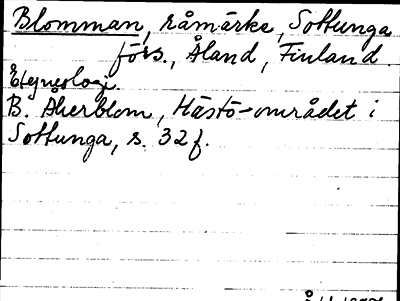 Blomman, råmärke, Sottunga
förs., Åland, Finland.
Etymologi.
B. Åkerblom, Hästö-området i
Sottunga, s. 32 f.